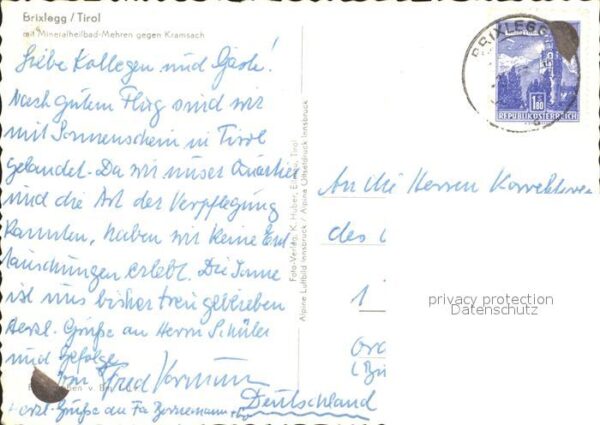 Brixlegg / Tirol
mit Mineralheilbad-Mehren gegen Kramsach
Liebe Kollegen und Gäste!
Nach gutem Flug sind wir
mit Sonnenschein in Tirol
gelandet. Da wir unser Quartier
und die Art der Verpflegung
kannten, haben wir keine Ent
täuschungen erlebt. Die Sonne
ist uns bisher treu geblieben
Herzl. Grüße an Herrn Schüler
und Gefolge
von Fred
Herzl. Grüße an Fa
Foto-Verlag K. Huber, Tirol
Alpine Luftbild Innsbruck / Alpine Offsetdruck Innsbruck
BRIXLEGG
1.80
REPUBLIK ÖSTERREICH
An die Herren Korrektoren
des
1
privacy protection
Datenschutz
Deutschland